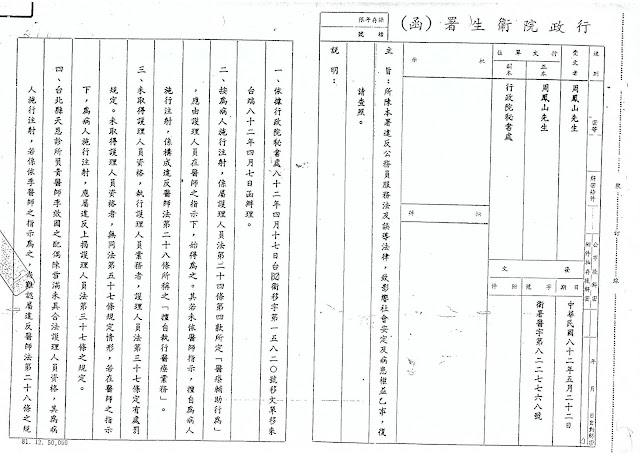 行政院衛生署(函)
保存年限
檔號
速別
密等
解密條件
公布後解密
附件抽存後解密
年 月 日自動解密
受文者
周鳳山先生
行文單位
正本
周鳳山先生
副本
行政院秘書處
發文
日期
中華民國八十二年五月二十二日
字號
衛署醫字第八二二七七六八號
附件
批示
擬辦
主旨：所陳本署違反公務員服務法及誤導法律，致影響社會安定及病患權益乙事，復
請查照。
說明：
一、依據行政院秘書處八十二年四月十七日台82衛移字第一五八二〇號移文單移來
台端八十二年四月七日函辦理。
二、按為病人施行注射，係屬護理人員法第二十四條第四款所定「醫療輔助行為」
，應由護理人員在醫師之指示下，始得為之。其若未依醫師指示，擅自為病人
施行注射，係構成違反醫師法第二十八條所稱之「擅自執行醫療業務」。
三、未取得護理人員資格，執行護理人員業務者，護理人員法第三十七條定有處罰
規定。未取得護理人員資格者，無同法第五十七條規定情形，若在醫師之指示
下，為病人施行注射，應屬違反上揭護理人員法第三十七條之規定。
四、台北縣天恩診所負責醫師李啟園之配偶陳富滿未具合法護理人員資格，其為病
人施行注射，若係依李醫師之指示為之，尚難認屬違反醫師法第二十八條之規
裝訂線
81. 12. 50,000